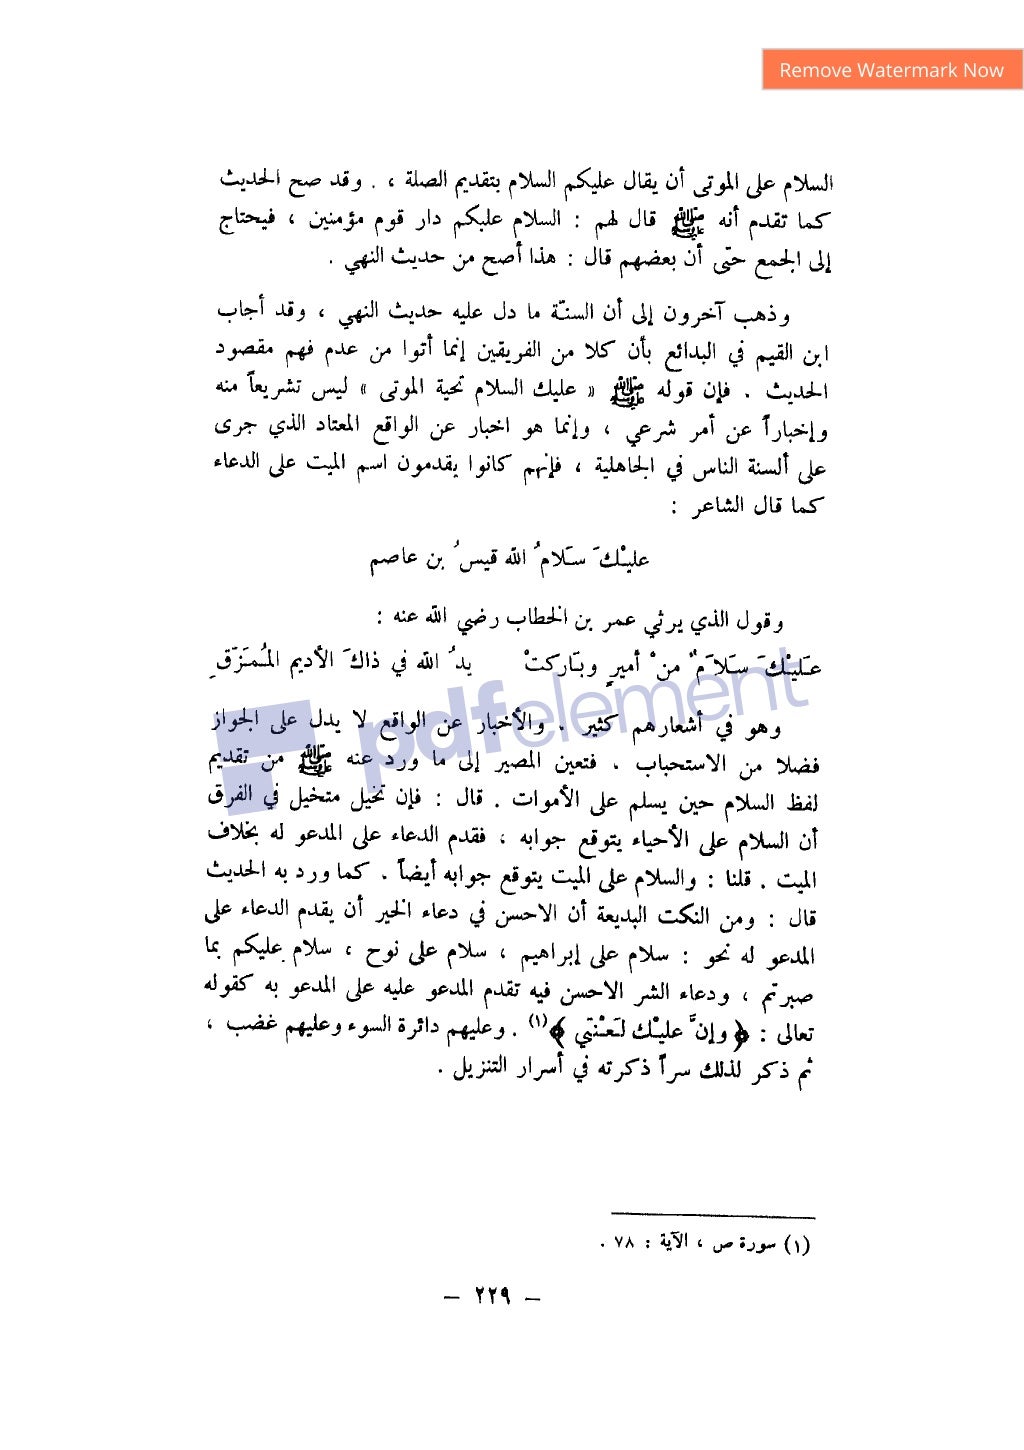 Remove Watermark Now
السلام على الموتى أن يقال عليكم السلام بتقديم الصلة ، . وقد صح الحديث
كما تقدم أنه ﷺ قال لهم : السلام علبكم دار قوم مؤمنين ، فيحتاج
إلى الجمع حتى أن بعضهم قال : هذا أصح من حديث النهي .
وذهب آخرون إلى أن السنّة ما دل عليه حديث النهي ، وقد أجاب
ابن القيم في البدائع بأن كلا من الفريقين إنما أتوا من عدم فهم مقصود
الحديث . فإن قوله ﷺ « عليك السلام تحية الموتى » ليس تشريعاً منه
وإخباراً عن أمر شرعي ، وإنما هو اخبار عن الواقع المعتاد الذي جرى
على ألسنة الناس في الجاهلية ، فإنهم كانوا يقدمون اسم الميت على الدعاء
كما قال الشاعر :
عليْكَ سَلامُ الله قيسُ بن عاصم
وقول الذي يرثي عمر بن الخطاب رضي الله عنه :
عَليْكَ سَلاَمٌ منْ أميرٍ وبَاركتْ يدُ الله في ذاكَ الأديم المُمَزّقِ
وهو في أشعارهم كثير . والأخبار عن الواقع لا يدل على الجواز
فضلا من الاستحباب . فتعين المصير إلى ما ورد عنه ﷺ من تقديم
لفظ السلام حين يسلم على الأموات . قال : فإن تخيل متخيل في الفرق
أن السلام على الأحياء يتوقع جوابه ، فقدم الدعاء على المدعو له بخلاف
الميت . قلنا : والسلام على الميت يتوقع جوابه أيضاً . كما ورد به الحديث
قال : ومن النكت البديعة أن الاحسن في دعاء الخير أن يقدم الدعاء على
المدعو له نحو : سلام على إبراهيم ، سلام على نوح ، سلام عليكم بما
صبرتم ، ودعاء الشر الاحسن فيه تقدم المدعو عليه على المدعو به كقوله
تعالى : ﴿ وإنَّ عليْك لَعْنتي ﴾(١) . وعليهم دائرة السوء وعليهم غضب ،
ثم ذكر لذلك سراً ذكرته في أسرار التنزيل .
pdfelement
(١) سورة ص ، الآية : ٧٨ .
– ٢٢٩ –